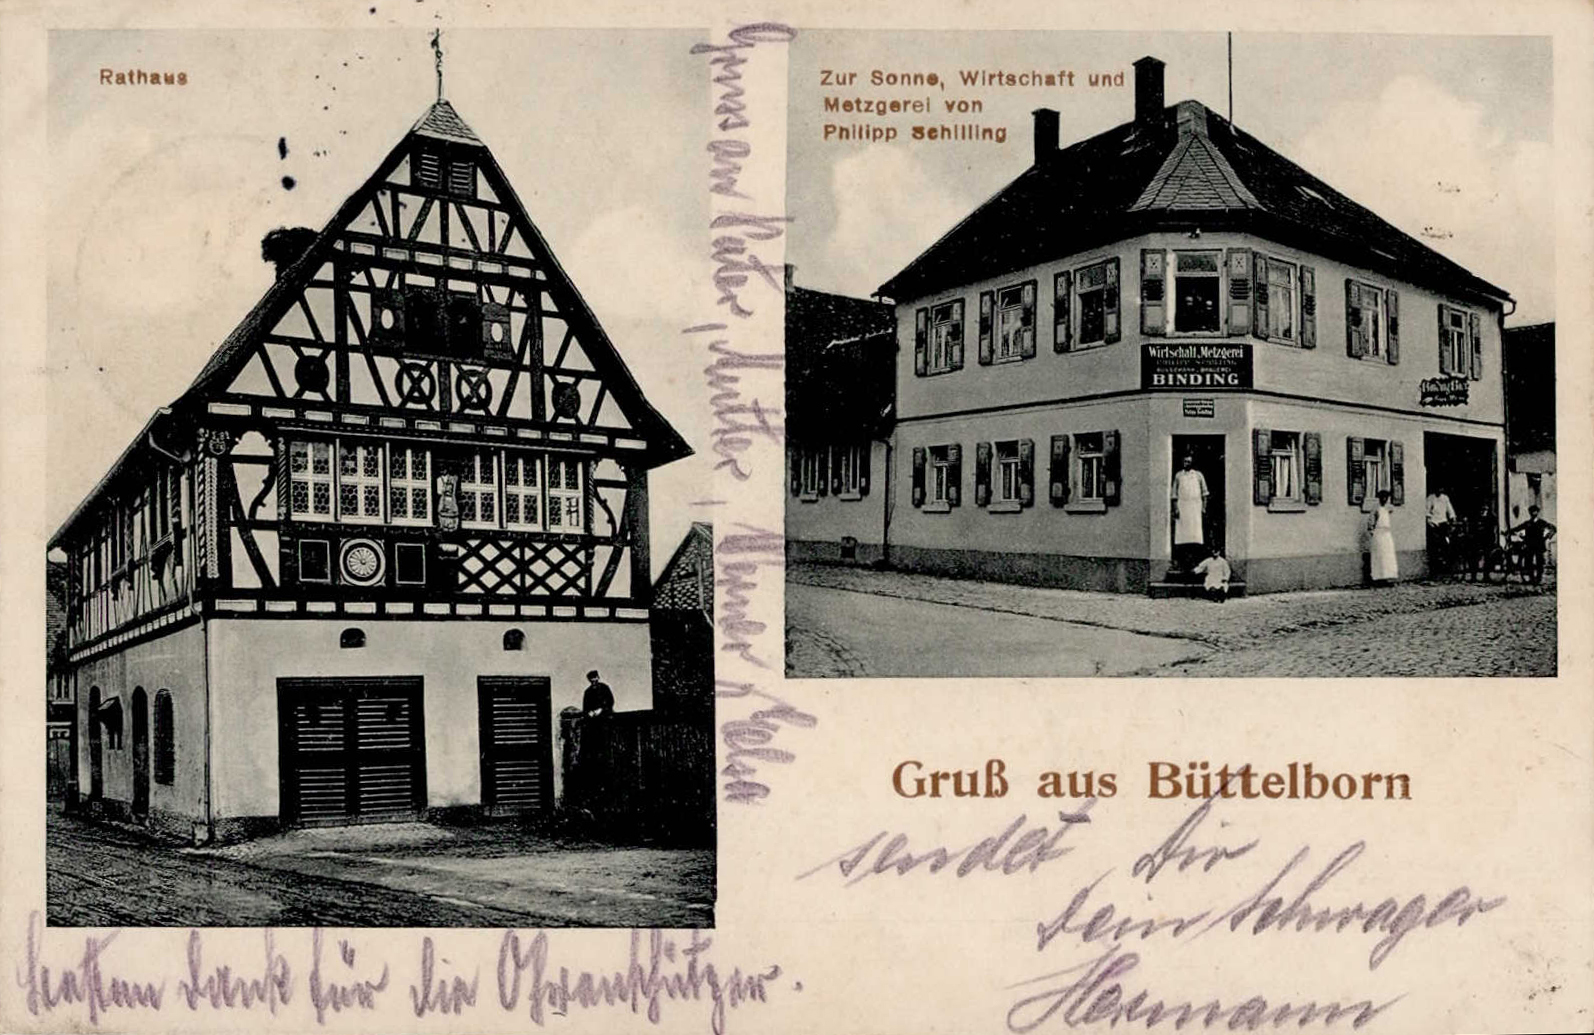 Rathaus
Zur Sonne, Wirtschaft und
Metzgerei von
Philipp Schilling
Wirtschaft u. Metzgerei
PHILIPP SCHILLING
BRAUEREI
BINDING
Binding Bier
Gruß aus Büttelborn
sendet Dir
Dein Schwager
Hermann
Vater, Mutter,
besten Dank für die Ohrenschützer.